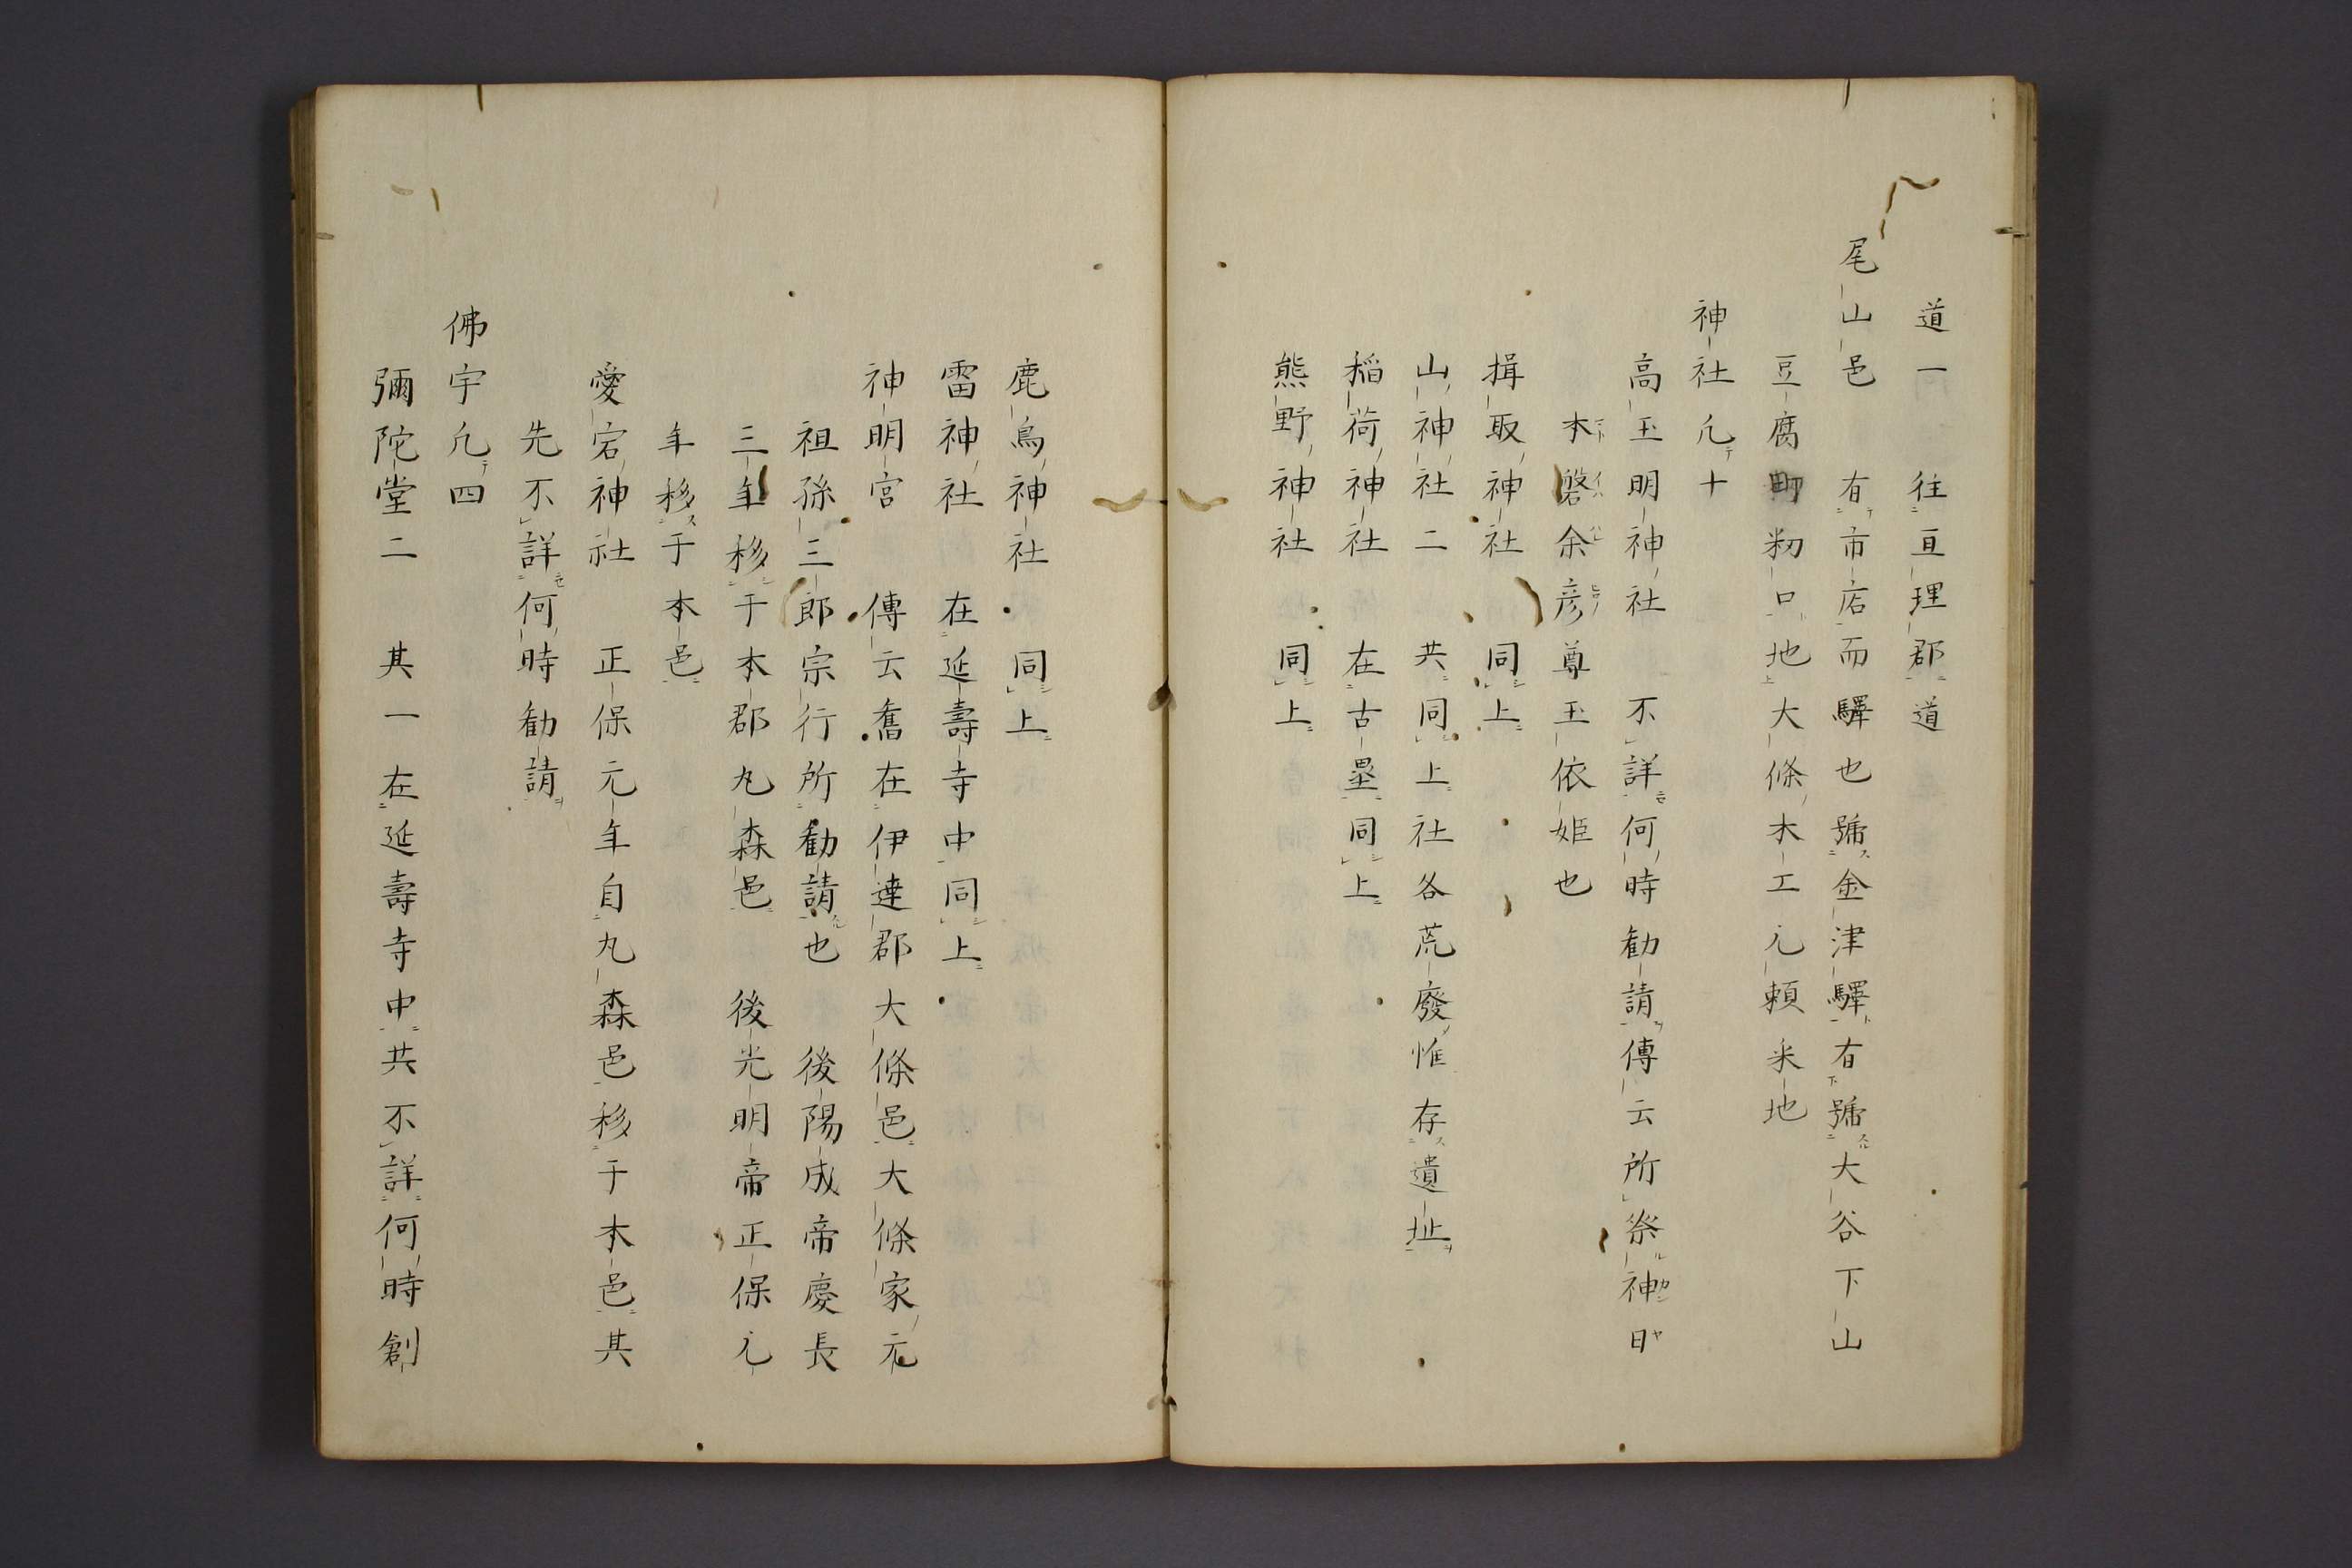 道一　往亘理郡道
尾山邑　有市店而驛也號金津驛有號大谷下山
豆腐町籾口地大條木工元頼釆地
神社凢十
高玉明神社　不詳何時勧請傳云所祭神日
本磐余彦尊玉依姫也
揖取神社　同上
山神社二　共同上社各荒廢惟存遺址
稲荷神社　在古塁同上
熊野神社　同上
鹿島神社　同上
雷神社　在延壽寺中同上
神明宮　傳云舊在伊達郡大條邑大條家元
祖孫三郎宗行所勧請也　後陽成帝慶長
三年移于本郡丸森邑　後光明帝正保元
年移于本邑
愛宕神社　正保元年自丸森邑移于本邑其
先不詳何時勧請
佛宇凢四
彌陀堂二　其一在延壽寺中共不詳何時創